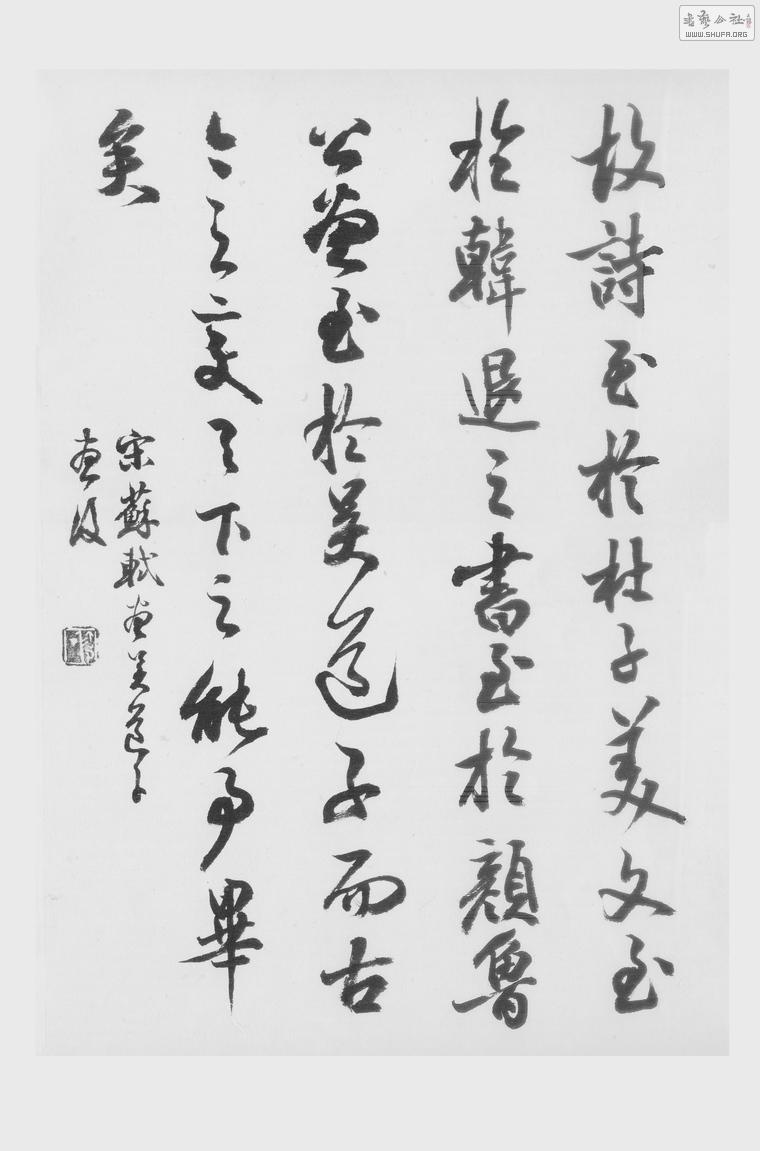 故詩至於杜子美文至
於韓退之書至於顏魯
公畫至於吳道子而古
今之變天下之能事畢
矣
宋蘇軾畫吳道子
畫後
書藝公社
WWW.SHUFA.ORG